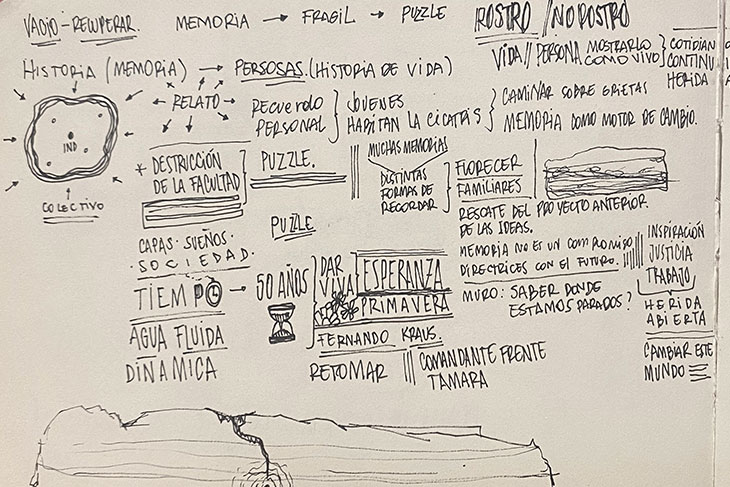 VACIO - RECUPERAR.
MEMORIA → FRAGIL → PUZZLE
ROSTRO // NO ROSTRO
VIDA // PERSONA MOSTRARLO COMO VIVO
COTIDIAN
CONTINU
HERIDA A
HISTORIA (MEMORIA) → PERSOSAS. (HISTORIA DE VIDA)
RELATO
RECUERDO
PERSONAL
JOVENES
HABITAN LA CICATRIS
CAMINAR SOBRE GRIETAS
MEMORIA COMO MOTOR DE CAMBIO.
IND
COLECTIVO
* DESTRICCIÓN
DE LA FACULTAD
PUZZLE.
MUCHAS MEMORIAS
DISTINTAS
FORMAS DE
RECORDAR
FLORECER
FAMILIARES
RESCATE DEL PROYECTO ANTERIOR.
DE LAS IDEAS.
MEMORIA NO ES UN COMPROMISO
DIRECTRICES CON EL FUTURO.
INSPIRACIÓN
JUSTICIA
TRABAJO
PUZZLE
CAPAS · SUEÑOS ·
· SOCIEDAD ·
TIEMPO → 50 AÑOS
DAR
VIVA
ESPERANZA
PRIMAVERA
MURO: SABER DONDE
ESTAMOS PARADOS?
HERIDA
ABIERTA
AGUA FLUIDA
DINAMICA
FERNANDO KRAUS.
RETOMAR
COMANDANTE FRENTE
TAMARA
CAMBIAR ESTE
MUNDO